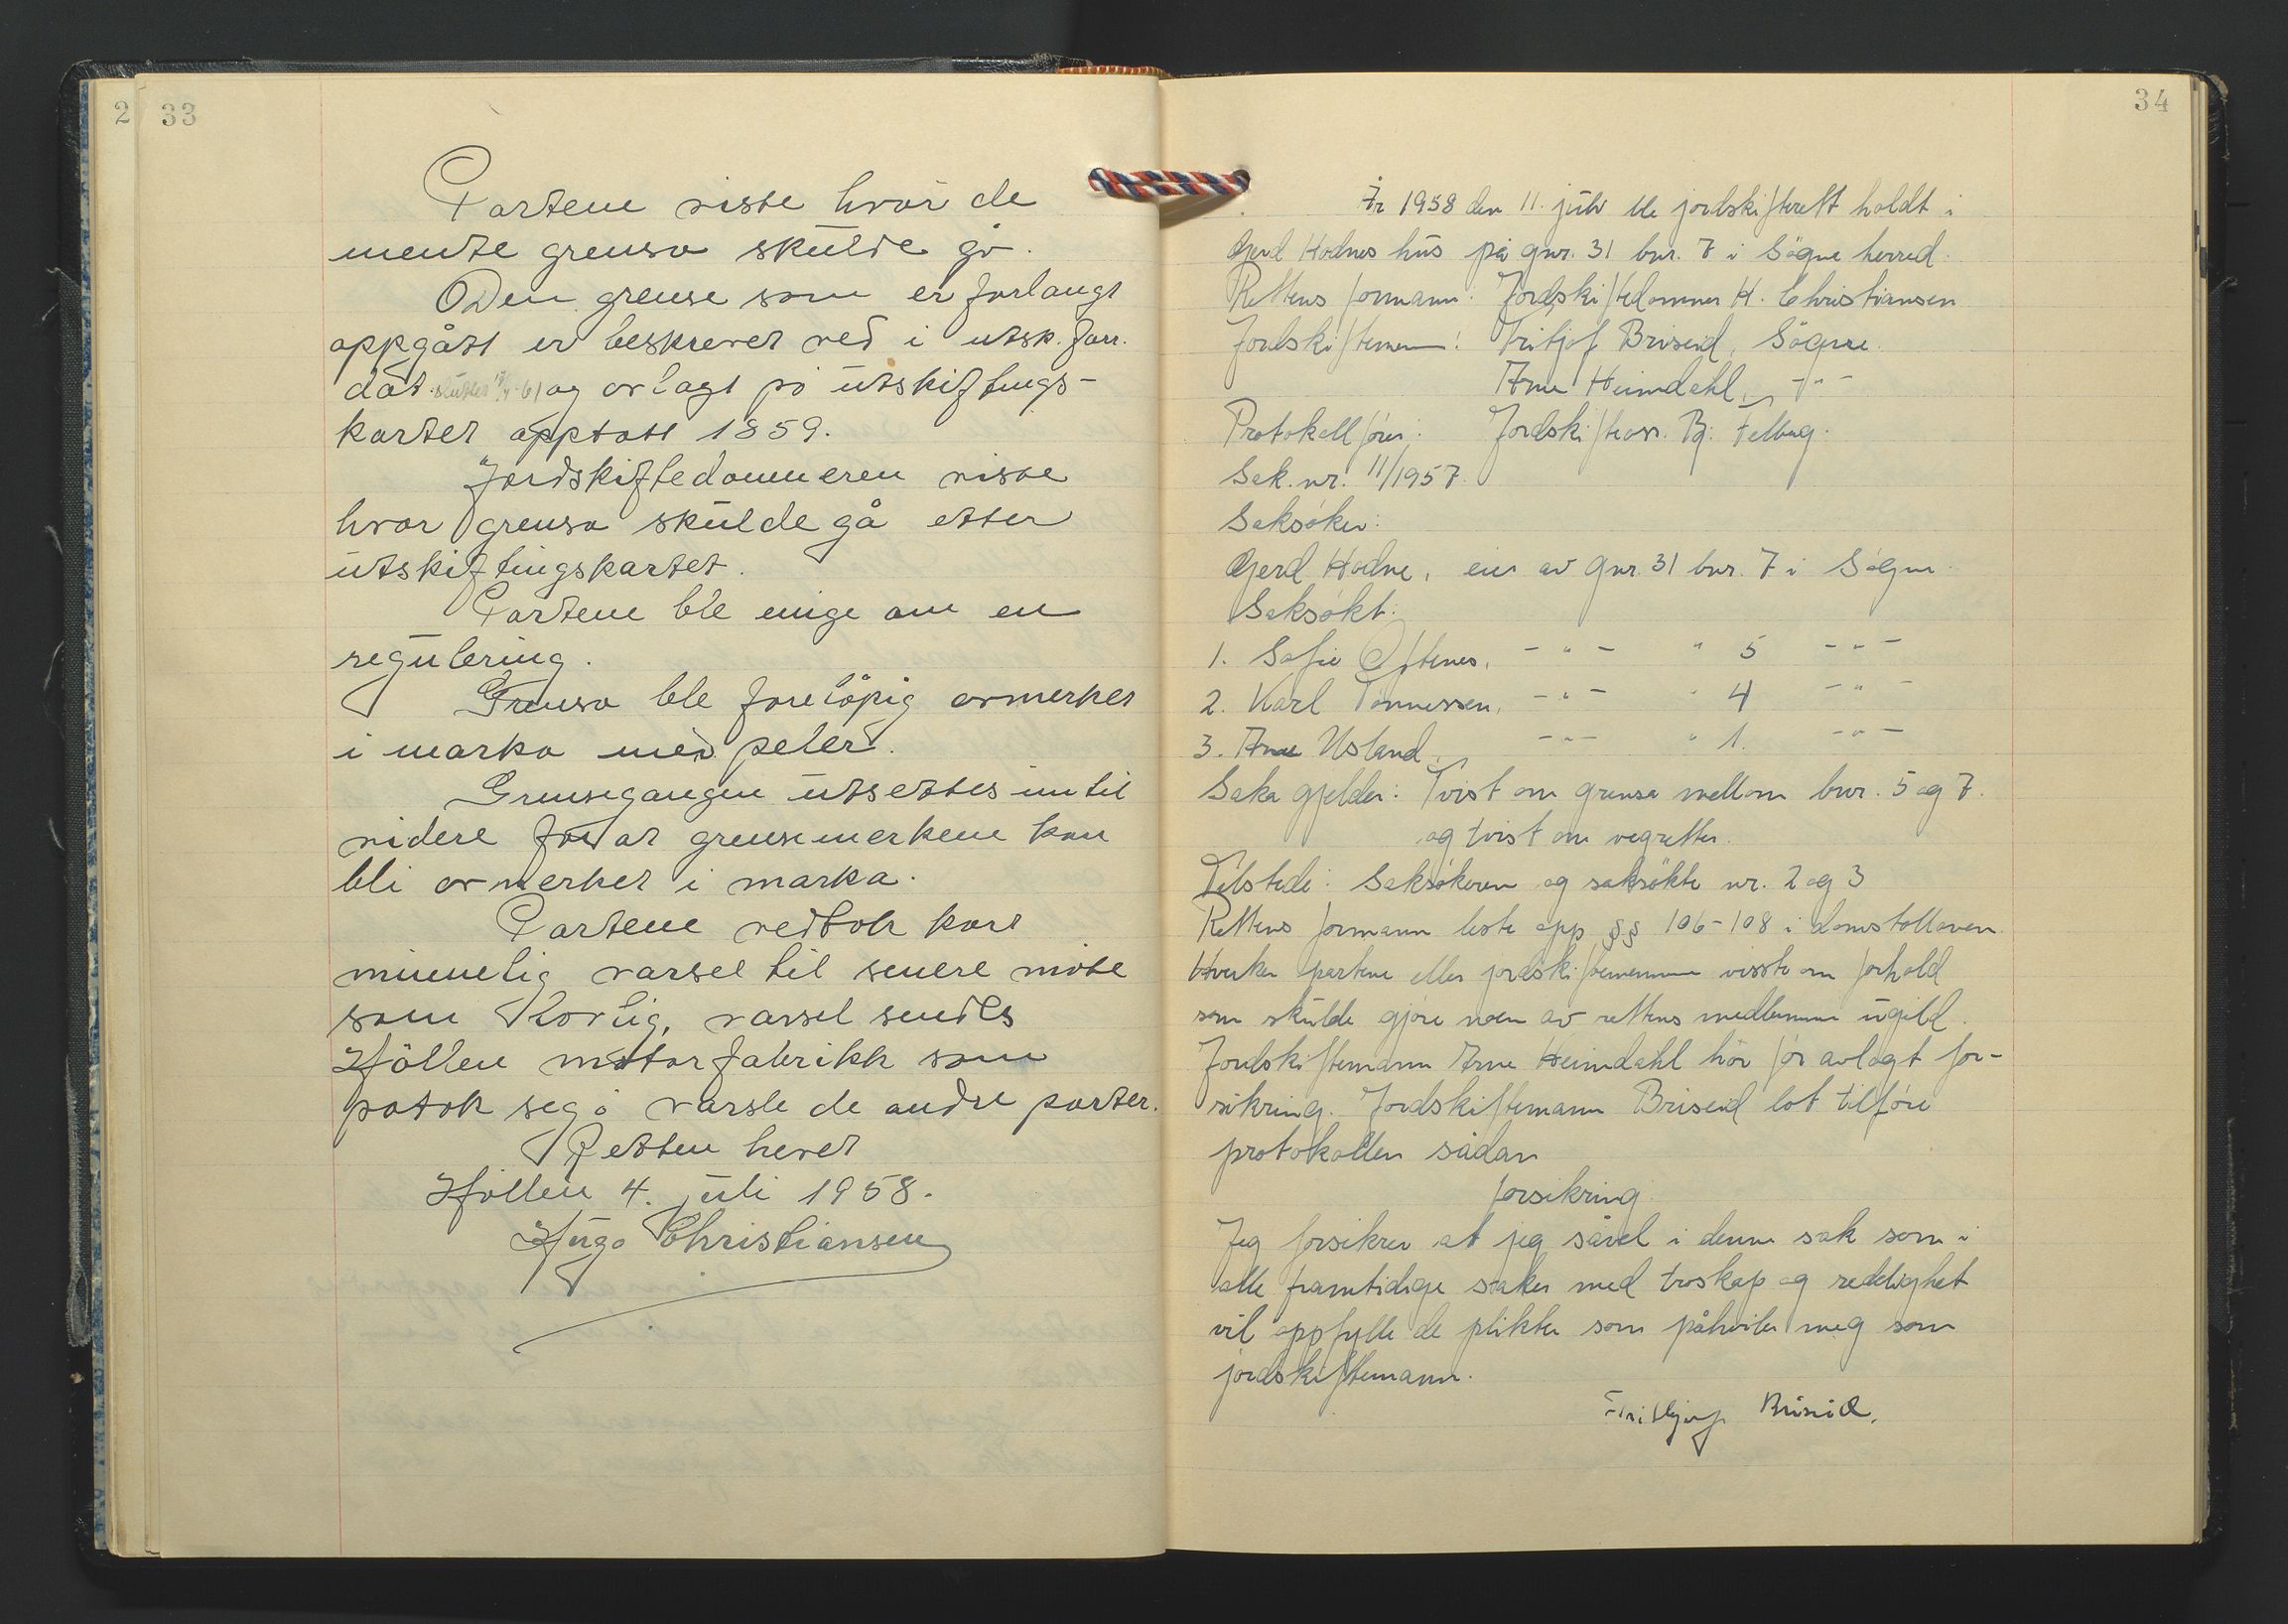 2 33
Partene viste hvor de
mente grensa skulde gå.
Den grense som er forlangt
oppgått er beskrevet ved i utsk. forr.
dat. sluttet og avlagt på utskiftings-
kartet opptatt 1859.
Jordskiftedommeren viste
hvor grensa skulde gå etter
utskiftingskartet.
Partene ble enige om en
regulering.
Grensa ble foreløpig avmerket
i marka med peler.
Grensegangen utsettes inntil
videre for at grensemerkene kan
bli avmerket i marka.
Partene vedtok kort
minnelig varsel til senere møte
som lovlig, varsel sendes
Høllen motorfabrikk som
påtok seg å varsle de andre parter.
Retten hevet
Høllen 4. juli 1958.
Hugo Christiansen
34
År 1958 den 11. juli ble jordskifterett holdt i
Gerd Hodnes hus på gnr. 31 bnr. 7 i Søgne herred.
Rettens formann: Jordskiftedommer H. Christiansen
Jordskiftemenn: Fritjof Briseid, Søgne.
Arne Heimdahl, -"-
Protokollfører: Jordskifteass. Bj. Felberg.
Sak. nr. 11/1957.
Saksøker:
Gerd Hodne, eier av gnr. 31 bnr. 7 i Søgne
Saksøkt:
1. Sofie Oftenes, -"- " 5 -"-
2. Karl Tønnessen, -"- " 4 -"-
3. Arne Usland, -"- " 1. -"-
Saka gjelder: Tvist om grensa mellom bnr. 5 og 7.
og tvist om vegretter.
Tilstede: Saksøkeren og saksøkte nr. 2 og 3
Rettens formann leste opp §§ 106-108 i domstolloven.
Hverken partene eller jordskiftemennene visste om forhold
som skulde gjøre noen av rettens medlemmer ugild.
Jordskiftemann Arne Heimdahl har før avlagt for-
sikring. Jordskiftemann Briseid lot tilføre
protokollen sådan
forsikring
Jeg forsikrer at jeg såvel i denne sak som i
alle framtidige saker med troskap og redelighet
vil oppfylle de plikter som påhviler meg som
jordskiftemann.
Fritjof Briseid.